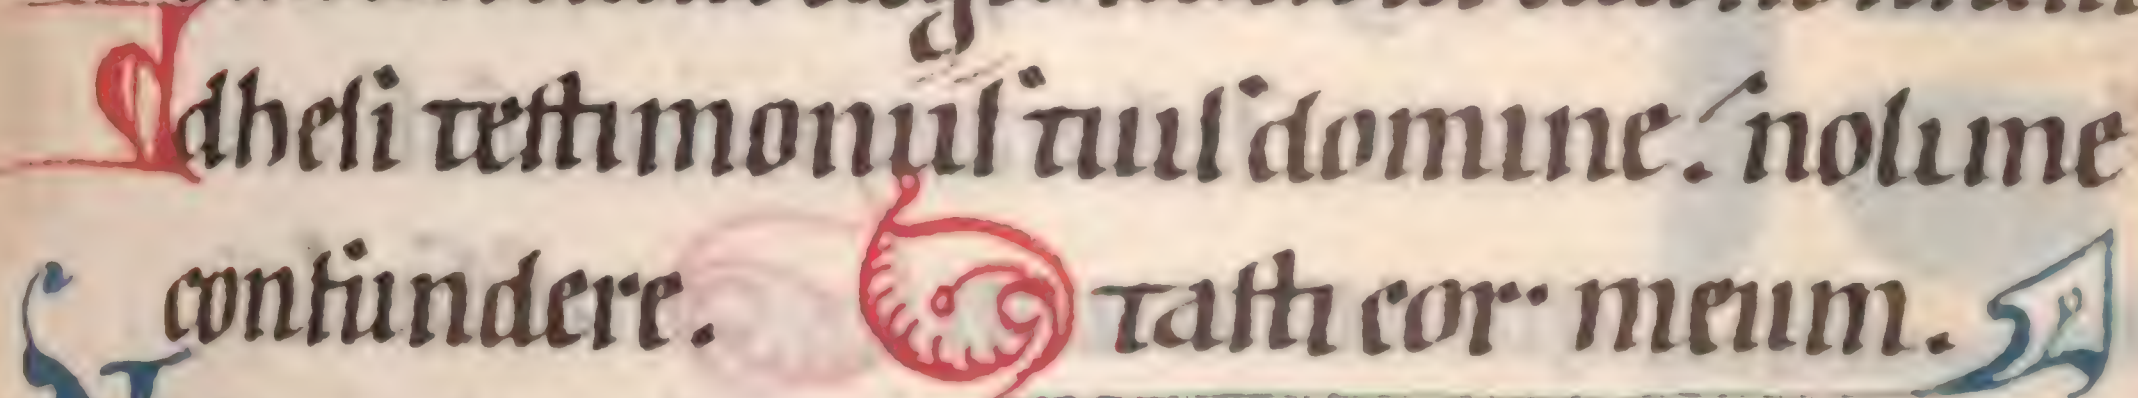 Adhesi testimoniis tuis domine. noli me
confundere. tasti cor meum.